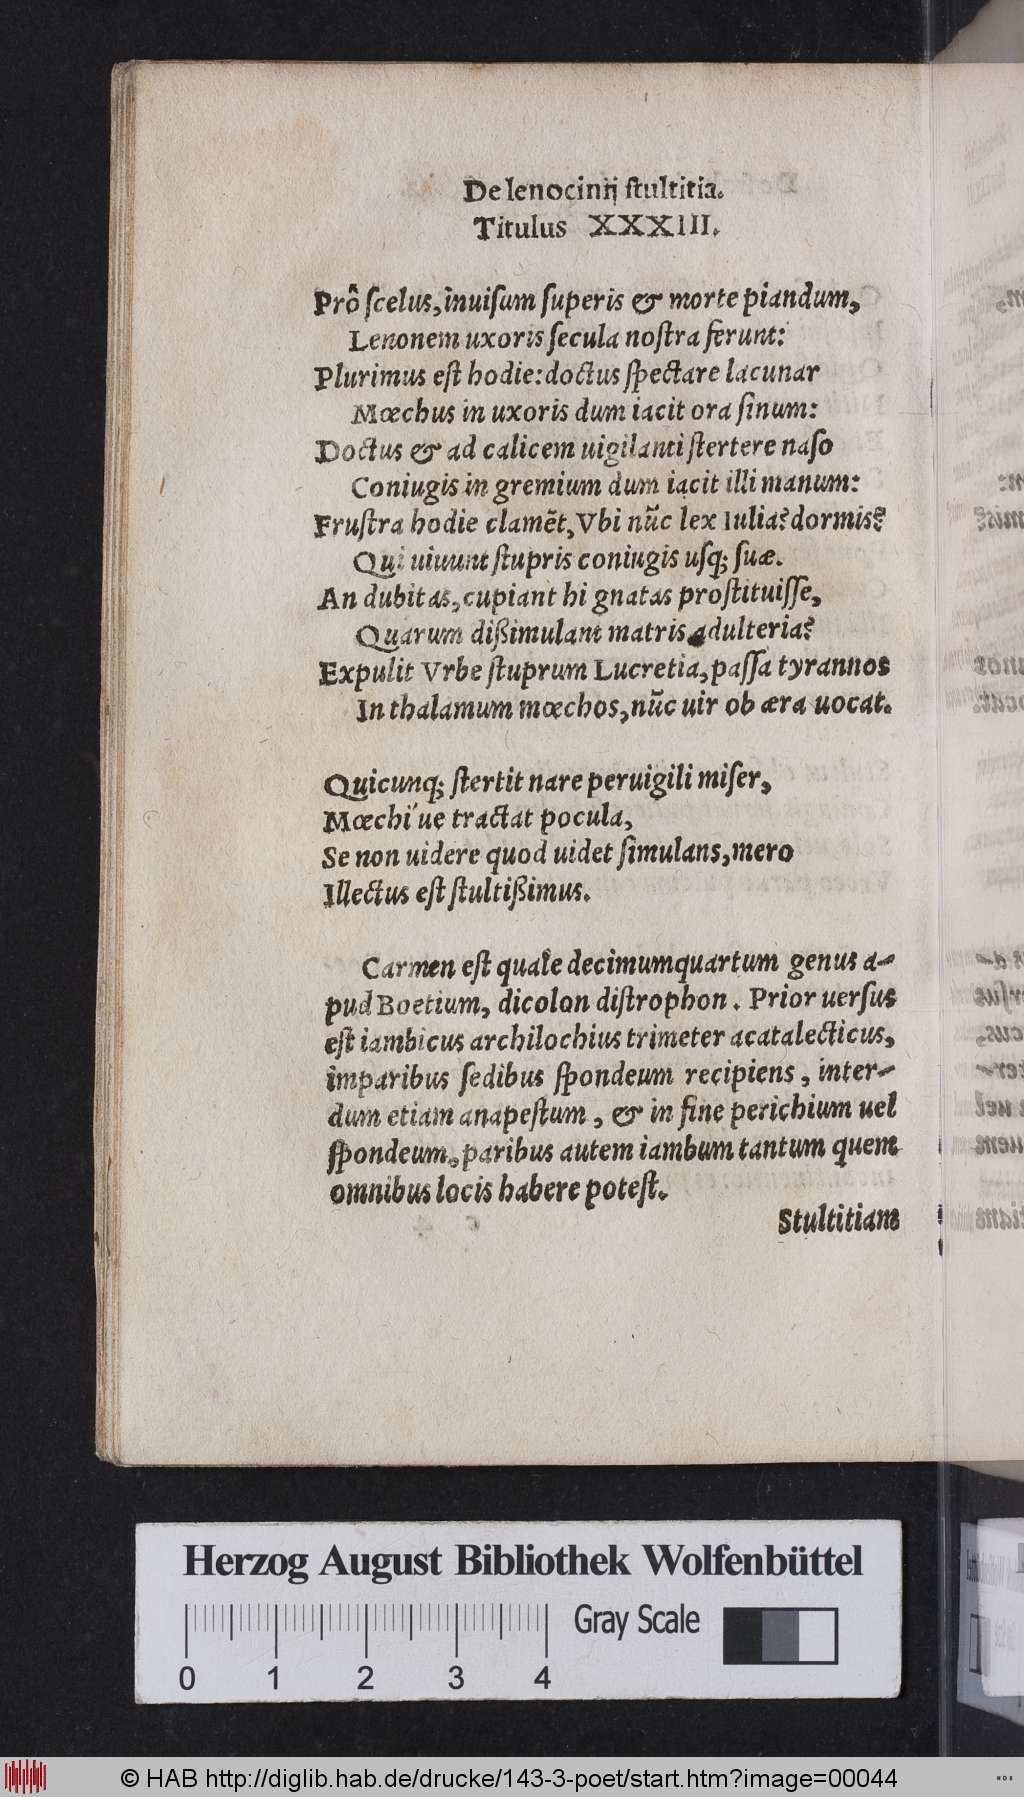 De lenocinij stultitia.
Titulus XXXIII.
Prô scelus, inuisum superis & morte piandum,
Lenonem uxoris secula nostra ferunt:
Plurimus est hodie: doctus spectare lacunar
Mœchus in uxoris dum iacit ora sinum:
Doctus & ad calicem uigilanti stertere naso
Coniugis in gremium dum iacit illi manum:
Frustra hodie clamẽt, Vbi nũc lex Iulia? dormis?
Qui uiuunt stupris coniugis usq; suæ.
An dubitas, cupiant hi gnatas prostituisse,
Quarum dißimulant matris adulteria?
Expulit Vrbe stuprum Lucretia, passa tyrannos
In thalamum mœchos, nũc uir ob æra uocat.
Quicunq; stertit nare peruigili miser,
Mœchi´ue tractat pocula,
Se non uidere quod uidet simulans, mero
Illectus est stultißimus.
Carmen est quale decimumquartum genus a-
pud Boetium, dicolon distrophon. Prior uersus
est iambicus archilochius trimeter acatalecticus,
imparibus sedibus spondeum recipiens, inter-
dum etiam anapestum, & in fine perichium uel
spondeum, paribus autem iambum tantum quem
omnibus locis habere potest.
Stultitiam
Herzog August Bibliothek Wolfenbüttel
Gray Scale
0 1 2 3 4
© HAB http://diglib.hab.de/drucke/143-3-poet/start.htm?image=00044